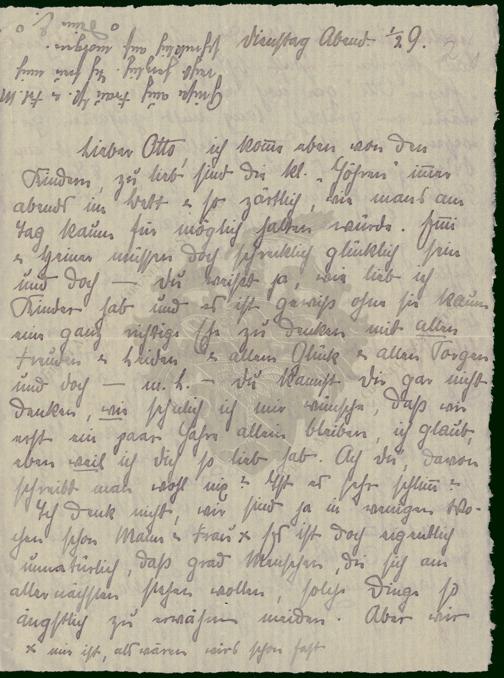 Dienstag Abend ½ 9.
Lieber Otto, ich komme eben von den
Kindern, zu lieb sind die kl. „Göhren" immer
abends im Bett & so zärtlich, wie mans am
Tag kaum für möglich halten würde.
& Heiner müssen doch schrecklich glücklich sein
und doch — du weißt ja, wie lieb ich
Kinder hab und es ist gewiß ohne sie kaum
eine ganz richtige Ehe zu denken mit allen
Freuden & Leiden & allem Glück & allen Sorgen
und doch — m. h. — du kannst dir gar nicht
denken, wie sehnlich ich mir wünsche, daß wir
erst ein paar Jahre allein bleiben, ich glaub,
eben weil ich dich so lieb hab. Ach du, davon
schreibt man wohl nix? Ist es sehr schlimm?
Ich denk nicht, wir sind ja in wenigen Wo-
chen schon Mann & Frau x es ist doch eigentlich
unnatürlich, daß grad Menschen, die sich am
allernächsten stehen wollen, solche Dinge so
ängstlich zu erwähnen meiden. Aber wir
x mir ist, als wären wirs schon fast